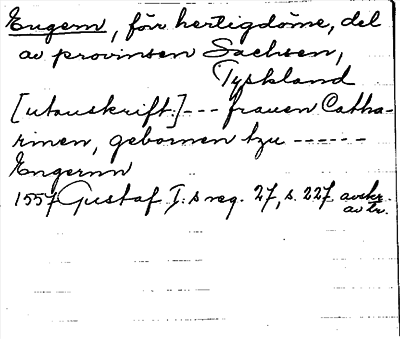 Engern, förr hertigdöme, del
av provinsen Sachsen,
Tyskland
[utanskrift:] --- frauen Catha-
rinen, gebornen tzu ------
Engernn
1557 Gustaf I:s reg. 27, s. 227 avskr.
av tr.